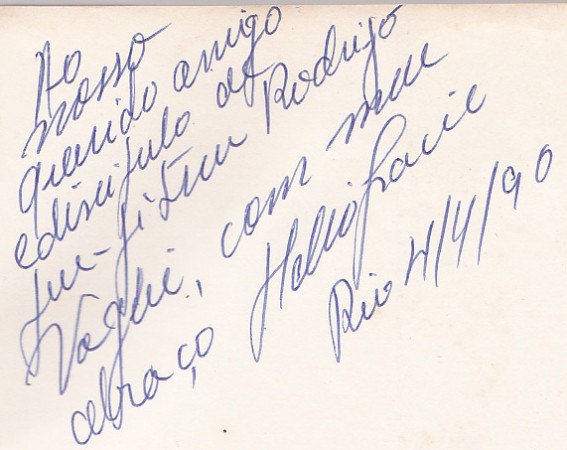 Ao
nosso
querido amigo
e discipulo de
Jiu-Jitsu Rodrigo
Vaghi, com meu
abraço Helio Gracie
Rio 4/4/90